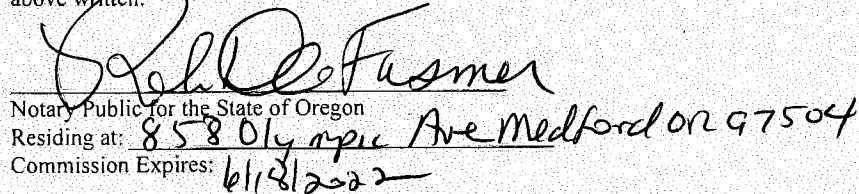 above written.
Notary Public for the State of Oregon
Residing at: 858 Olympic Ave Medford OR 97504
Commission Expires: 6/18/2022